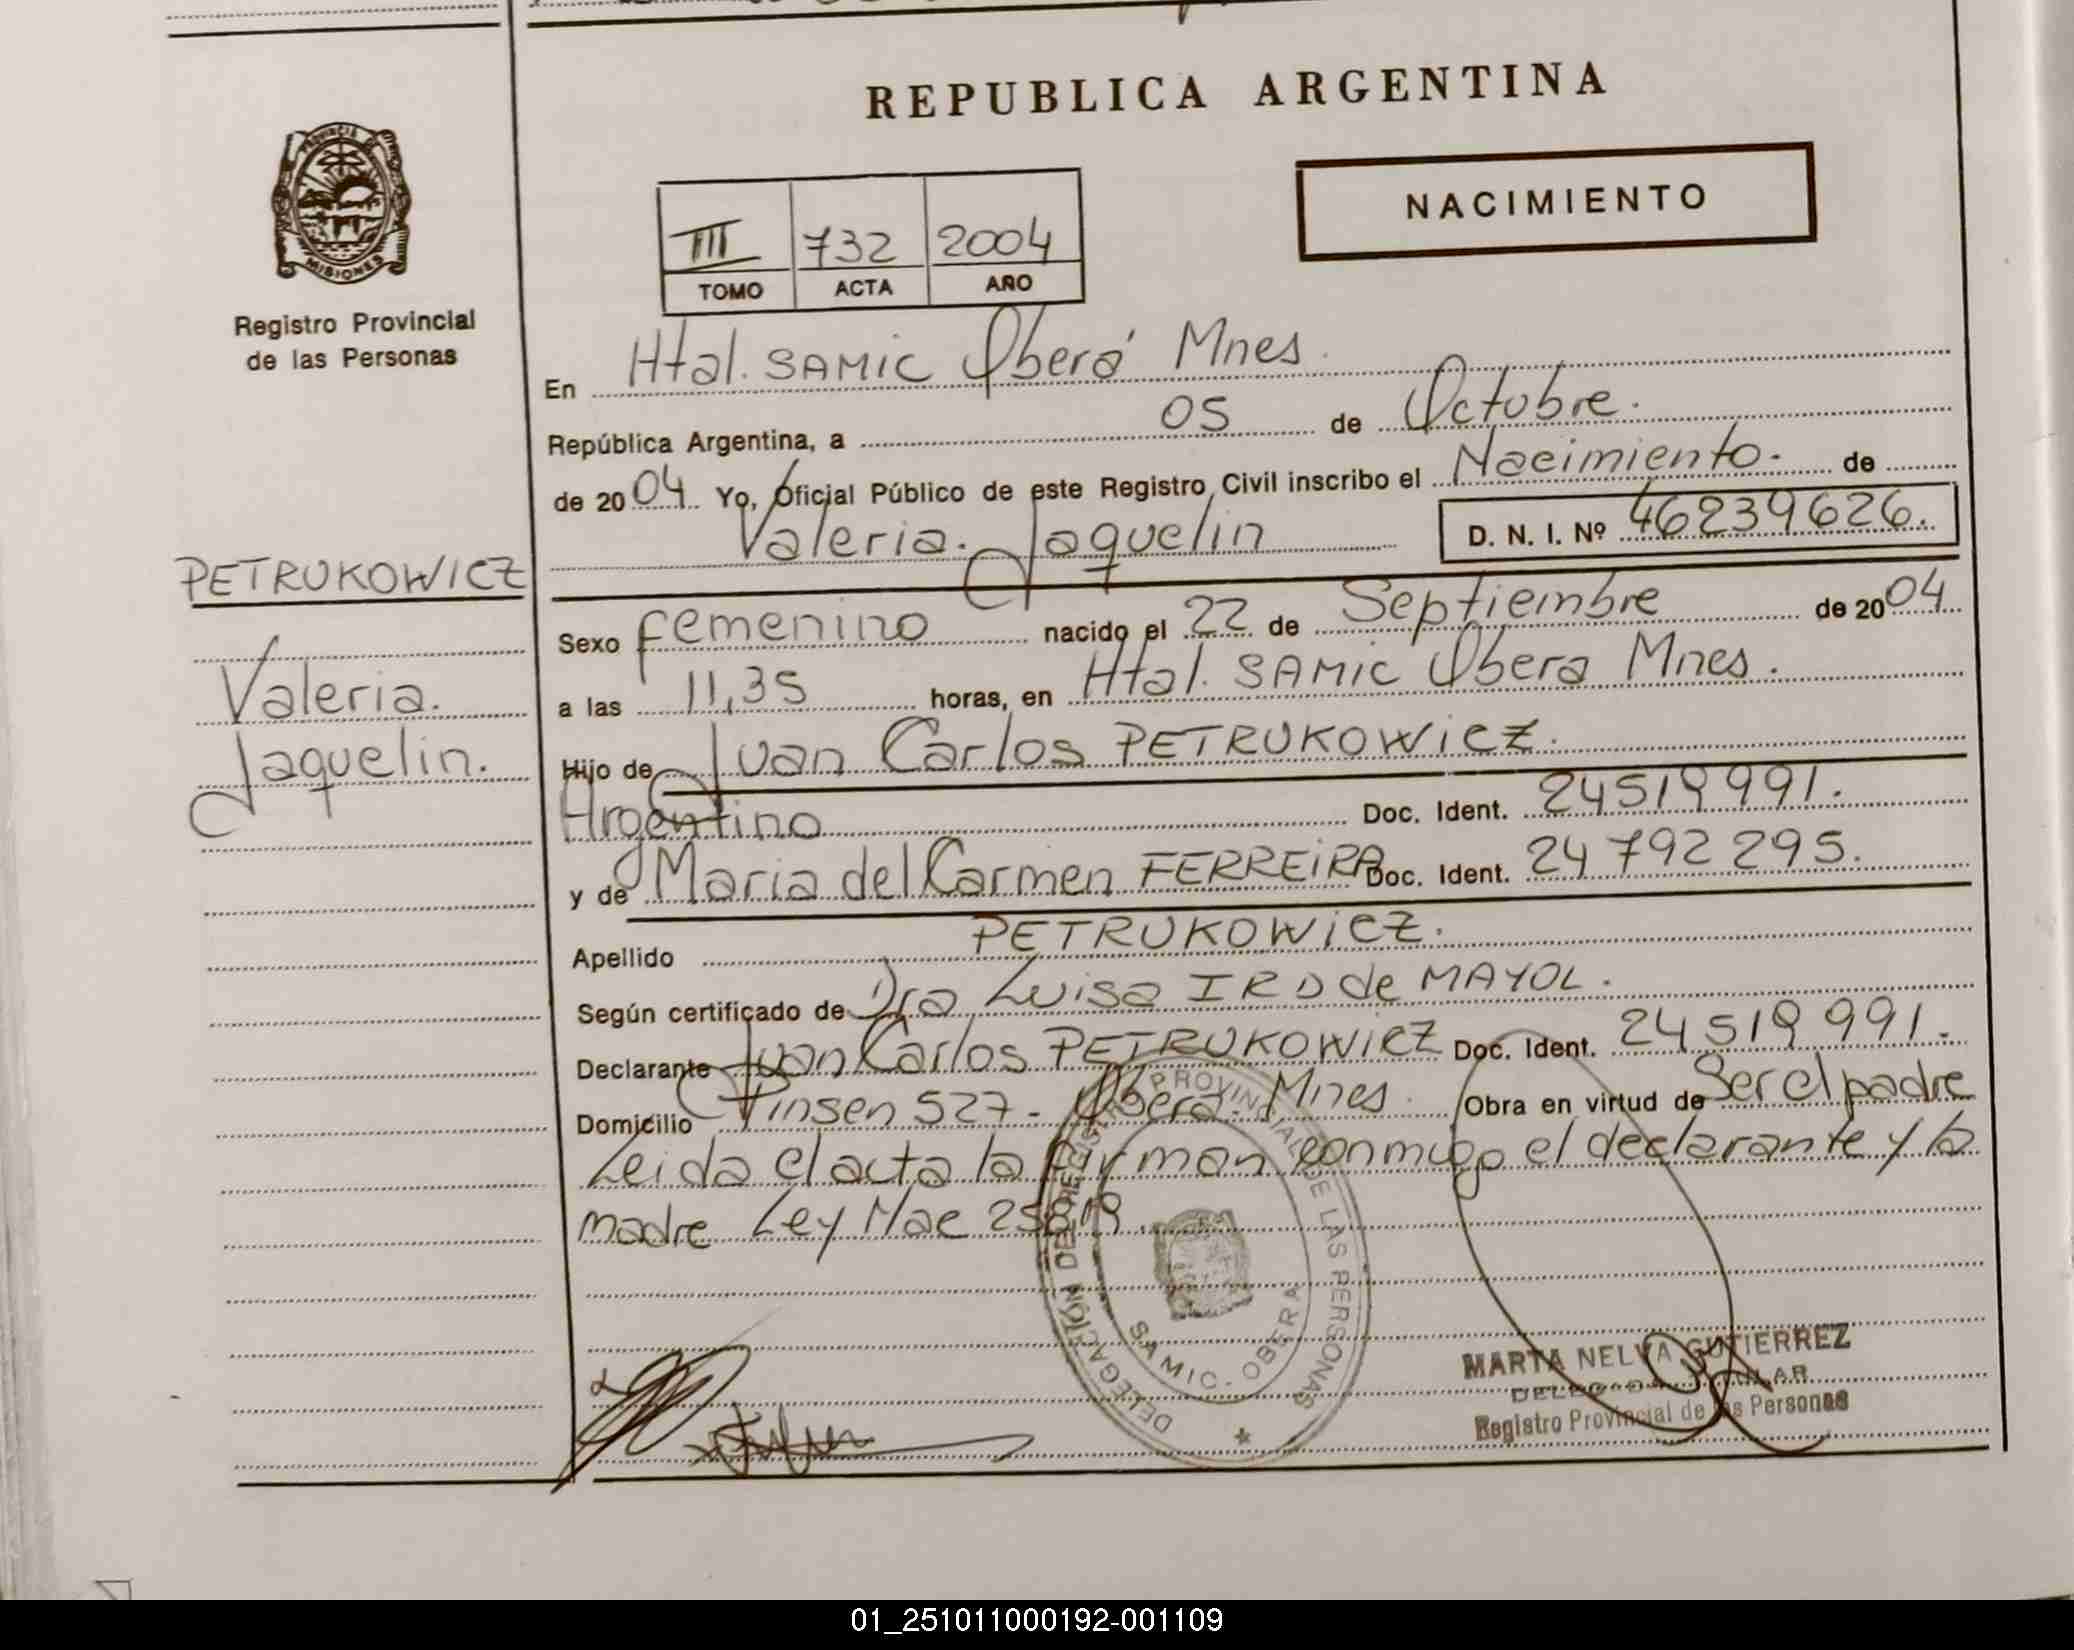 REPUBLICA ARGENTINA
PROVINCIA
MISIONES
Registro Provincial
de las Personas
NACIMIENTO
III 732 2004
TOMO ACTA AÑO
En Htal. SAMIC Oberá Mnes.
República Argentina, a 05 de Octubre.
de 2004. Yo, Oficial Público de este Registro Civil inscribo el Nacimiento. de
Valeria. Jaquelin D. N. I. Nº 46239626.
PETRUKOWICZ
Valeria.
Jaquelin.
Sexo femenino nacido el 22 de Septiembre de 2004
a las 11,35 horas, en Htal. SAMIC Obera Mnes.
Hijo de Juan Carlos PETRUKOWICZ.
Argentino Doc. Ident. 24519991.
y de Maria del Carmen FERREIRA Doc. Ident. 24792295.
Apellido PETRUKOWICZ.
Según certificado de Dra Luisa IRD de MAYOL.
Declarante Juan Carlos PETRUKOWICZ Doc. Ident. 24519991.
Domicilio Pinsen 527 - Obera. Mnes. Obra en virtud de Ser el padre
Leida el acta la firman conmigo el declarante y la
madre Ley Nac
DELEGACION DEL REGISTRO PROVINCIAL DE LAS PERSONAS
SAMIC. OBERA
MARTA NELVA GUTIERREZ
Registro Provincial de las Personas
01_251011000192-001109